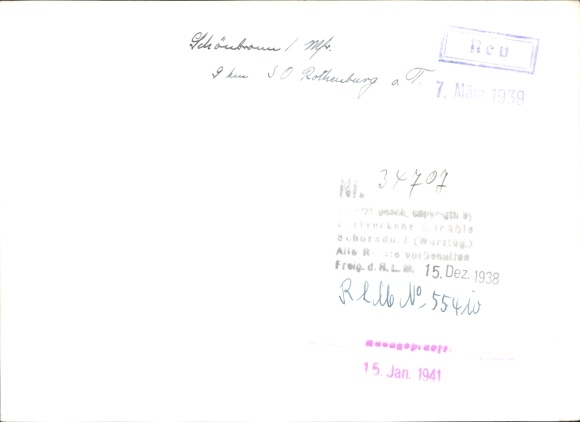 Schönbronn / Mfr.
9 km S O Rothenburg o. T.
Neu
7. März 1939
Nr. 34707
copyright by
Luftverkehr Strähle
Schorndorf (Württbg.)
Alle Rechte vorbehalten
Freig. d. R. L. M. 15. Dez. 1938
R L M No
15. Jan. 1941